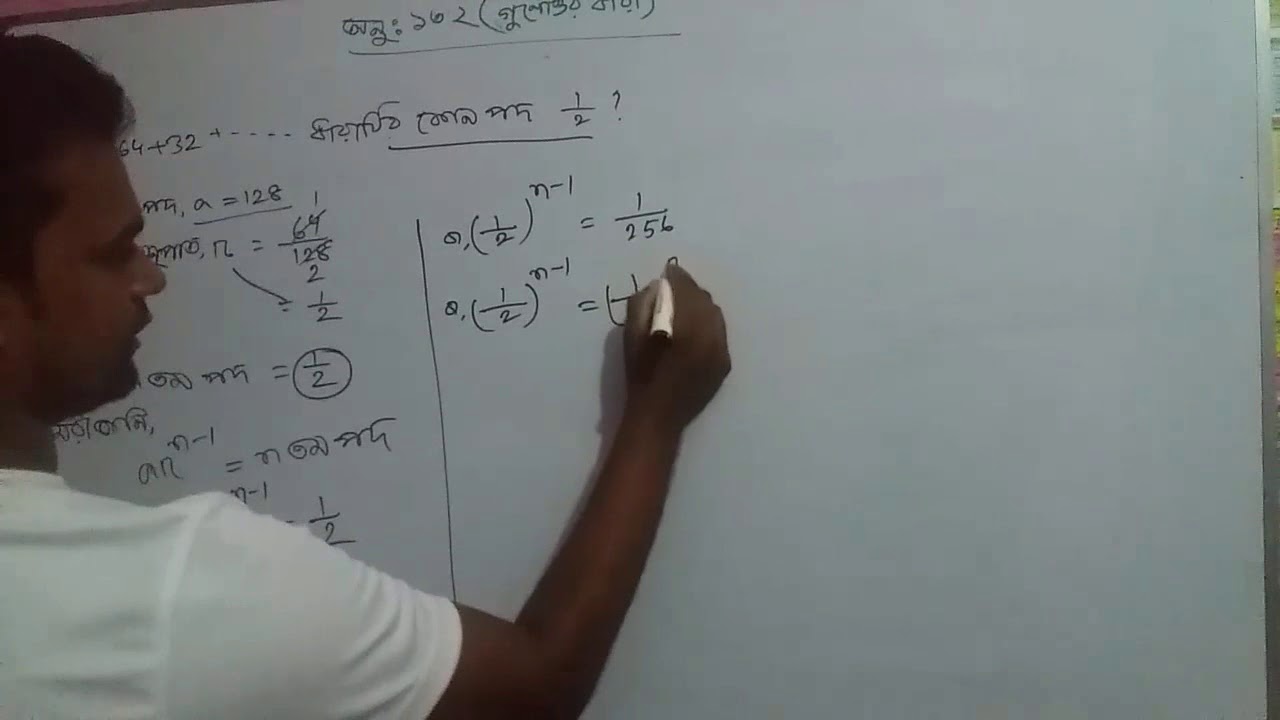 অনু: ১৩২ (গুণোত্তর ধারা)
64+32+---- ধারাটির কোন পদ 1/2 ?
পদ, a = 128
অনুপাত, r = 64/128
1
2
= 1/2
তম পদ = 1/2
আমরা জানি,
ar^n-1 = n তম পদ
n-1 = 1/2
বা, (1/2)^n-1 = 1/256
বা, (1/2)^n-1 = (1